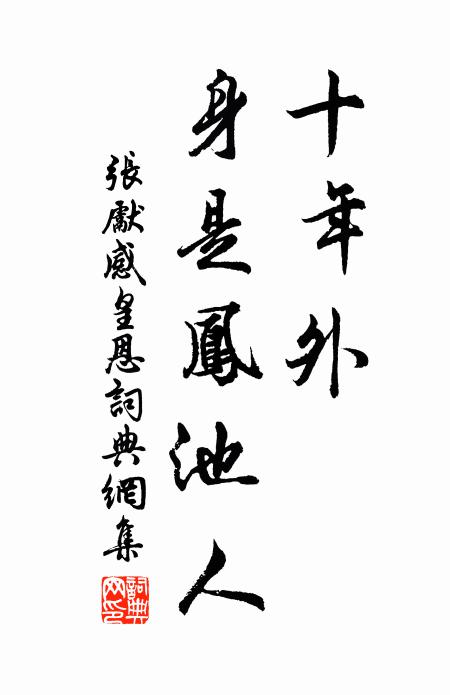 十年外
身是鳳池人
張獻感皇恩詞典網集
詞典
网印